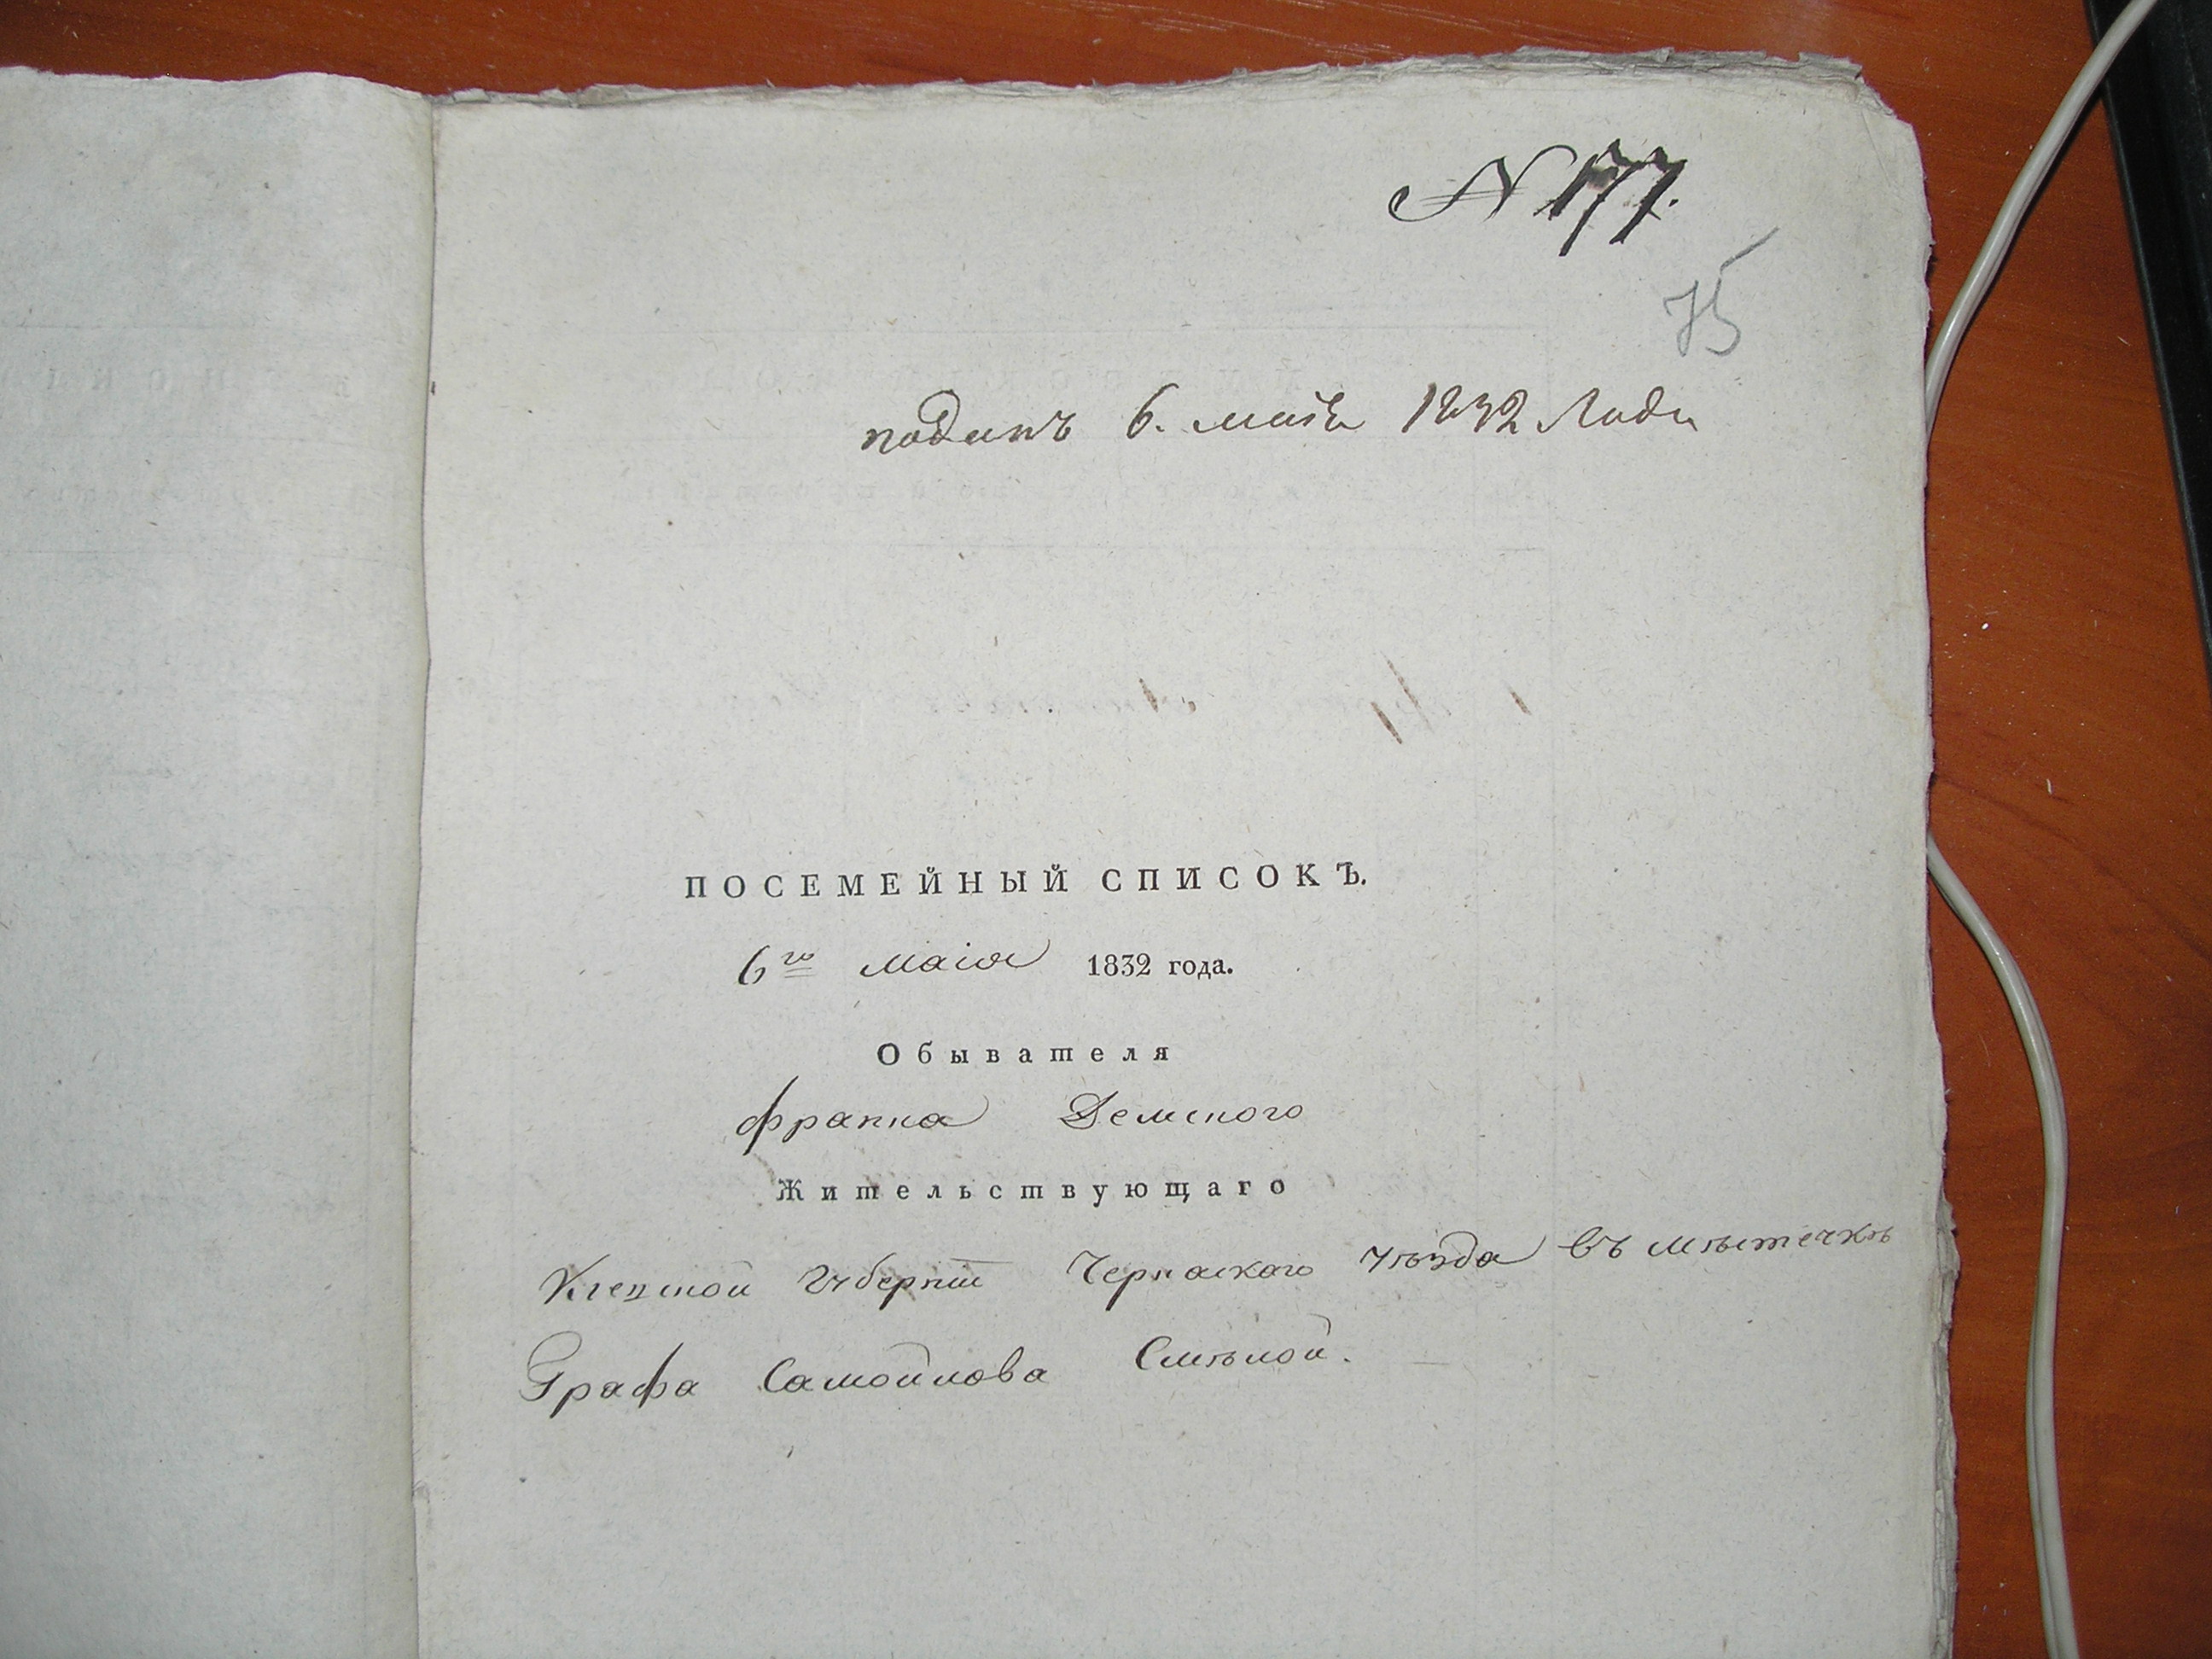 N 177.
75
поданъ 6. маія 1832 года
ПОСЕМЕЙНЫЙ СПИСОКЪ.
6го маія 1832 года.
Обывателя
франка Демского
Жительствующаго
Кіевской Губерніи Черкаскаго уѣзда въ мѣстечкѣ
Графа Самойлова Смѣлой.